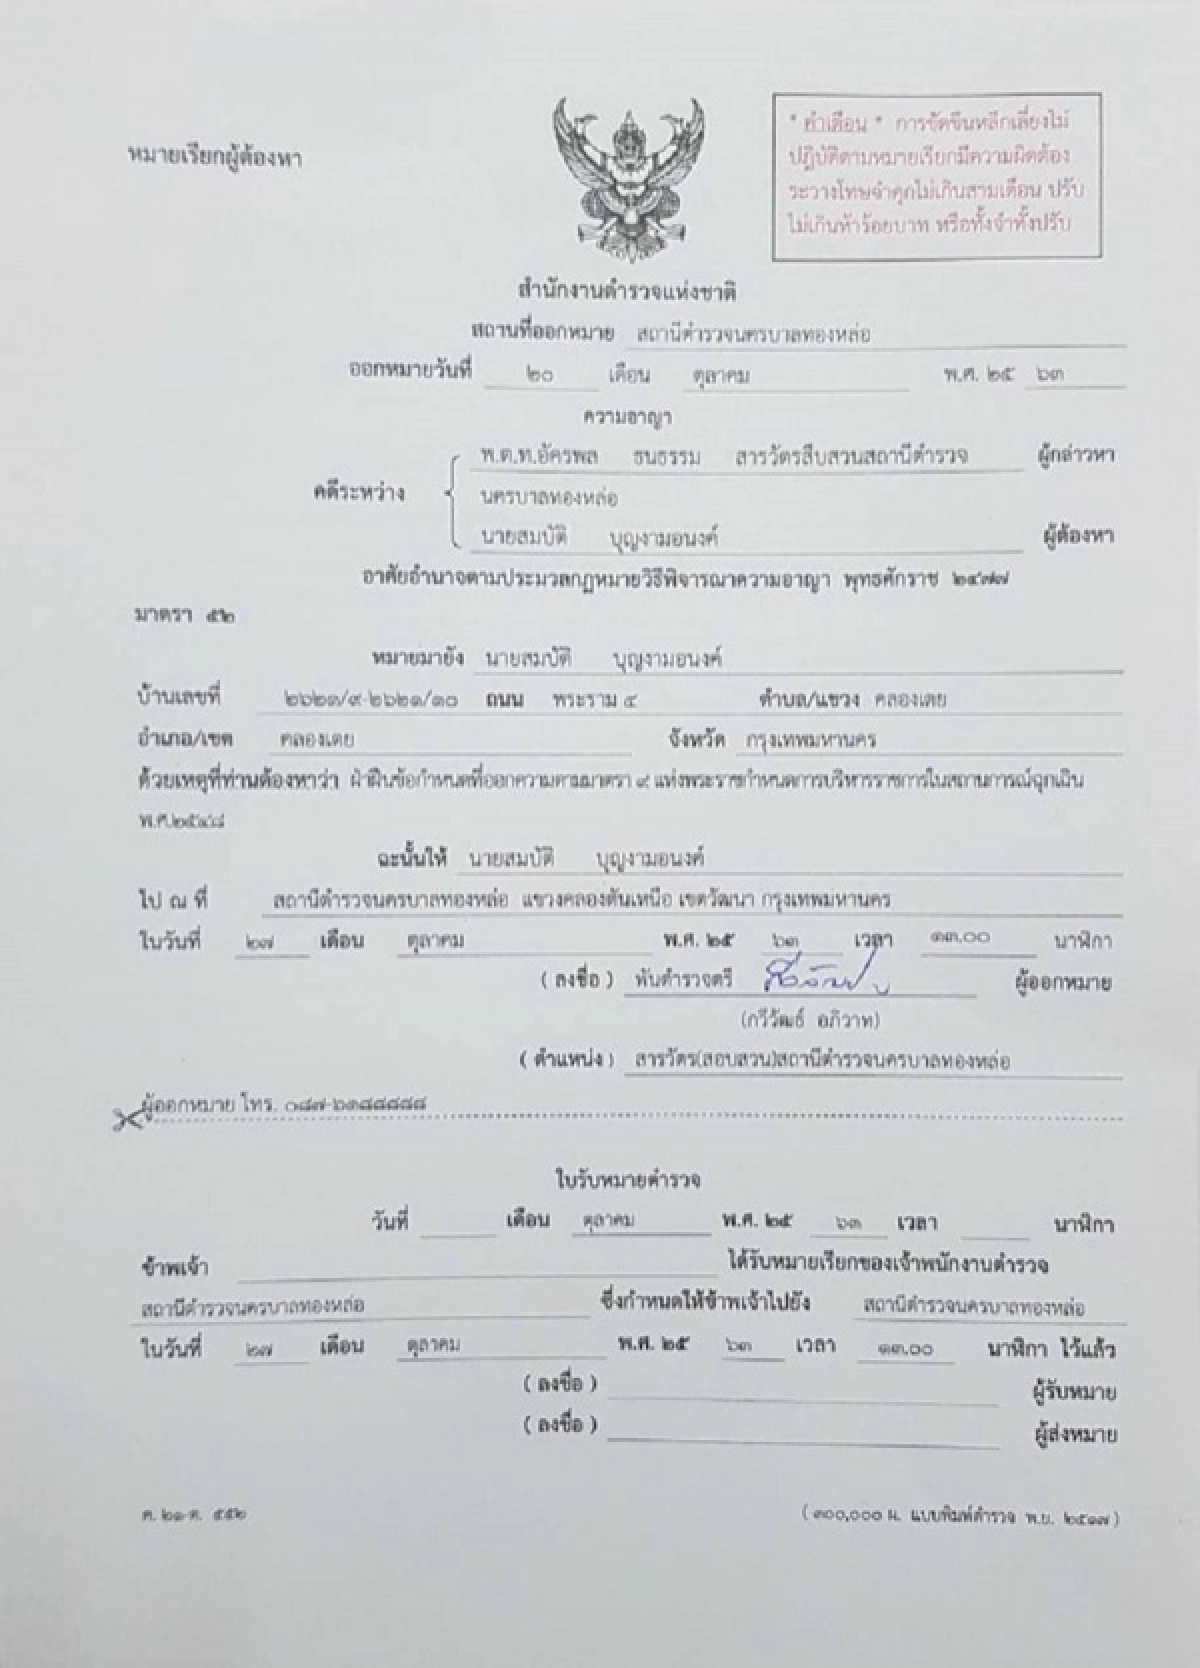 หมายเรียกผู้ต้องหา
* คำเตือน * การขัดขืนหลีกเลี่ยงไม่
ปฏิบัติตามหมายเรียกมีความผิดต้อง
ระวางโทษจำคุกไม่เกินสามเดือน ปรับ
ไม่เกินห้าร้อยบาท หรือทั้งจำทั้งปรับ
สำนักงานตำรวจแห่งชาติ
สถานที่ออกหมาย สถานีตำรวจนครบาลทองหล่อ
ออกหมายวันที่ ๒๐ เดือน ตุลาคม พ.ศ. ๒๕ ๖๓
ความอาญา
พ.ต.ท.อัครพล ธนธรรม สารวัตรสืบสวนสถานีตำรวจ ผู้กล่าวหา
คดีระหว่าง นครบาลทองหล่อ
นายสมบัติ บุญงามอนงค์ ผู้ต้องหา
อาศัยอำนาจตามประมวลกฎหมายวิธีพิจารณาความอาญา พุทธศักราช ๒๔๗๗
มาตรา ๕๒
หมายมายัง นายสมบัติ บุญงามอนงค์
บ้านเลขที่ ๒๖๒๑/๙-๒๖๒๑/๑๐ ถนน พระราม ๔ ตำบล/แขวง คลองเตย
อำเภอ/เขต คลองเตย จังหวัด กรุงเทพมหานคร
ด้วยเหตุที่ท่านต้องหาว่า ฝ่าฝืนข้อกำหนดที่ออกความตามมาตรา ๙ แห่งพระราชกำหนดการบริหารราชการในสถานการณ์ฉุกเฉิน
พ.ศ.๒๕๔๘
ฉะนั้นให้ นายสมบัติ บุญงามอนงค์
ไป ณ ที่ สถานีตำรวจนครบาลทองหล่อ แขวงคลองตันเหนือ เขตวัฒนา กรุงเทพมหานคร
ในวันที่ ๒๗ เดือน ตุลาคม พ.ศ. ๒๕ ๖๓ เวลา ๑๓.๐๐ นาฬิกา
( ลงชื่อ ) พันตำรวจตรี ผู้ออกหมาย
(กวีวัฒธ์ อภิวาท)
( ตำแหน่ง ) สารวัตร(สอบสวน)สถานีตำรวจนครบาลทองหล่อ
ผู้ออกหมาย โทร. ๐๘๗-๖๓๘๘๘๘๘
ใบรับหมายตำรวจ
วันที่ เดือน ตุลาคม พ.ศ. ๒๕ ๖๓ เวลา นาฬิกา
ข้าพเจ้า ได้รับหมายเรียกของเจ้าพนักงานตำรวจ
สถานีตำรวจนครบาลทองหล่อ ซึ่งกำหนดให้ข้าพเจ้าไปยัง สถานีตำรวจนครบาลทองหล่อ
ในวันที่ ๒๗ เดือน ตุลาคม พ.ศ. ๒๕ ๖๓ เวลา ๑๓.๐๐ นาฬิกา ไว้แล้ว
( ลงชื่อ ) ผู้รับหมาย
( ลงชื่อ ) ผู้ส่งหมาย
ค. ๒๑-ต. ๕๕๒
( ๓๐๐,๐๐๐ ผ. แบบพิมพ์ตำรวจ พ.ย. ๒๕๑๗ )